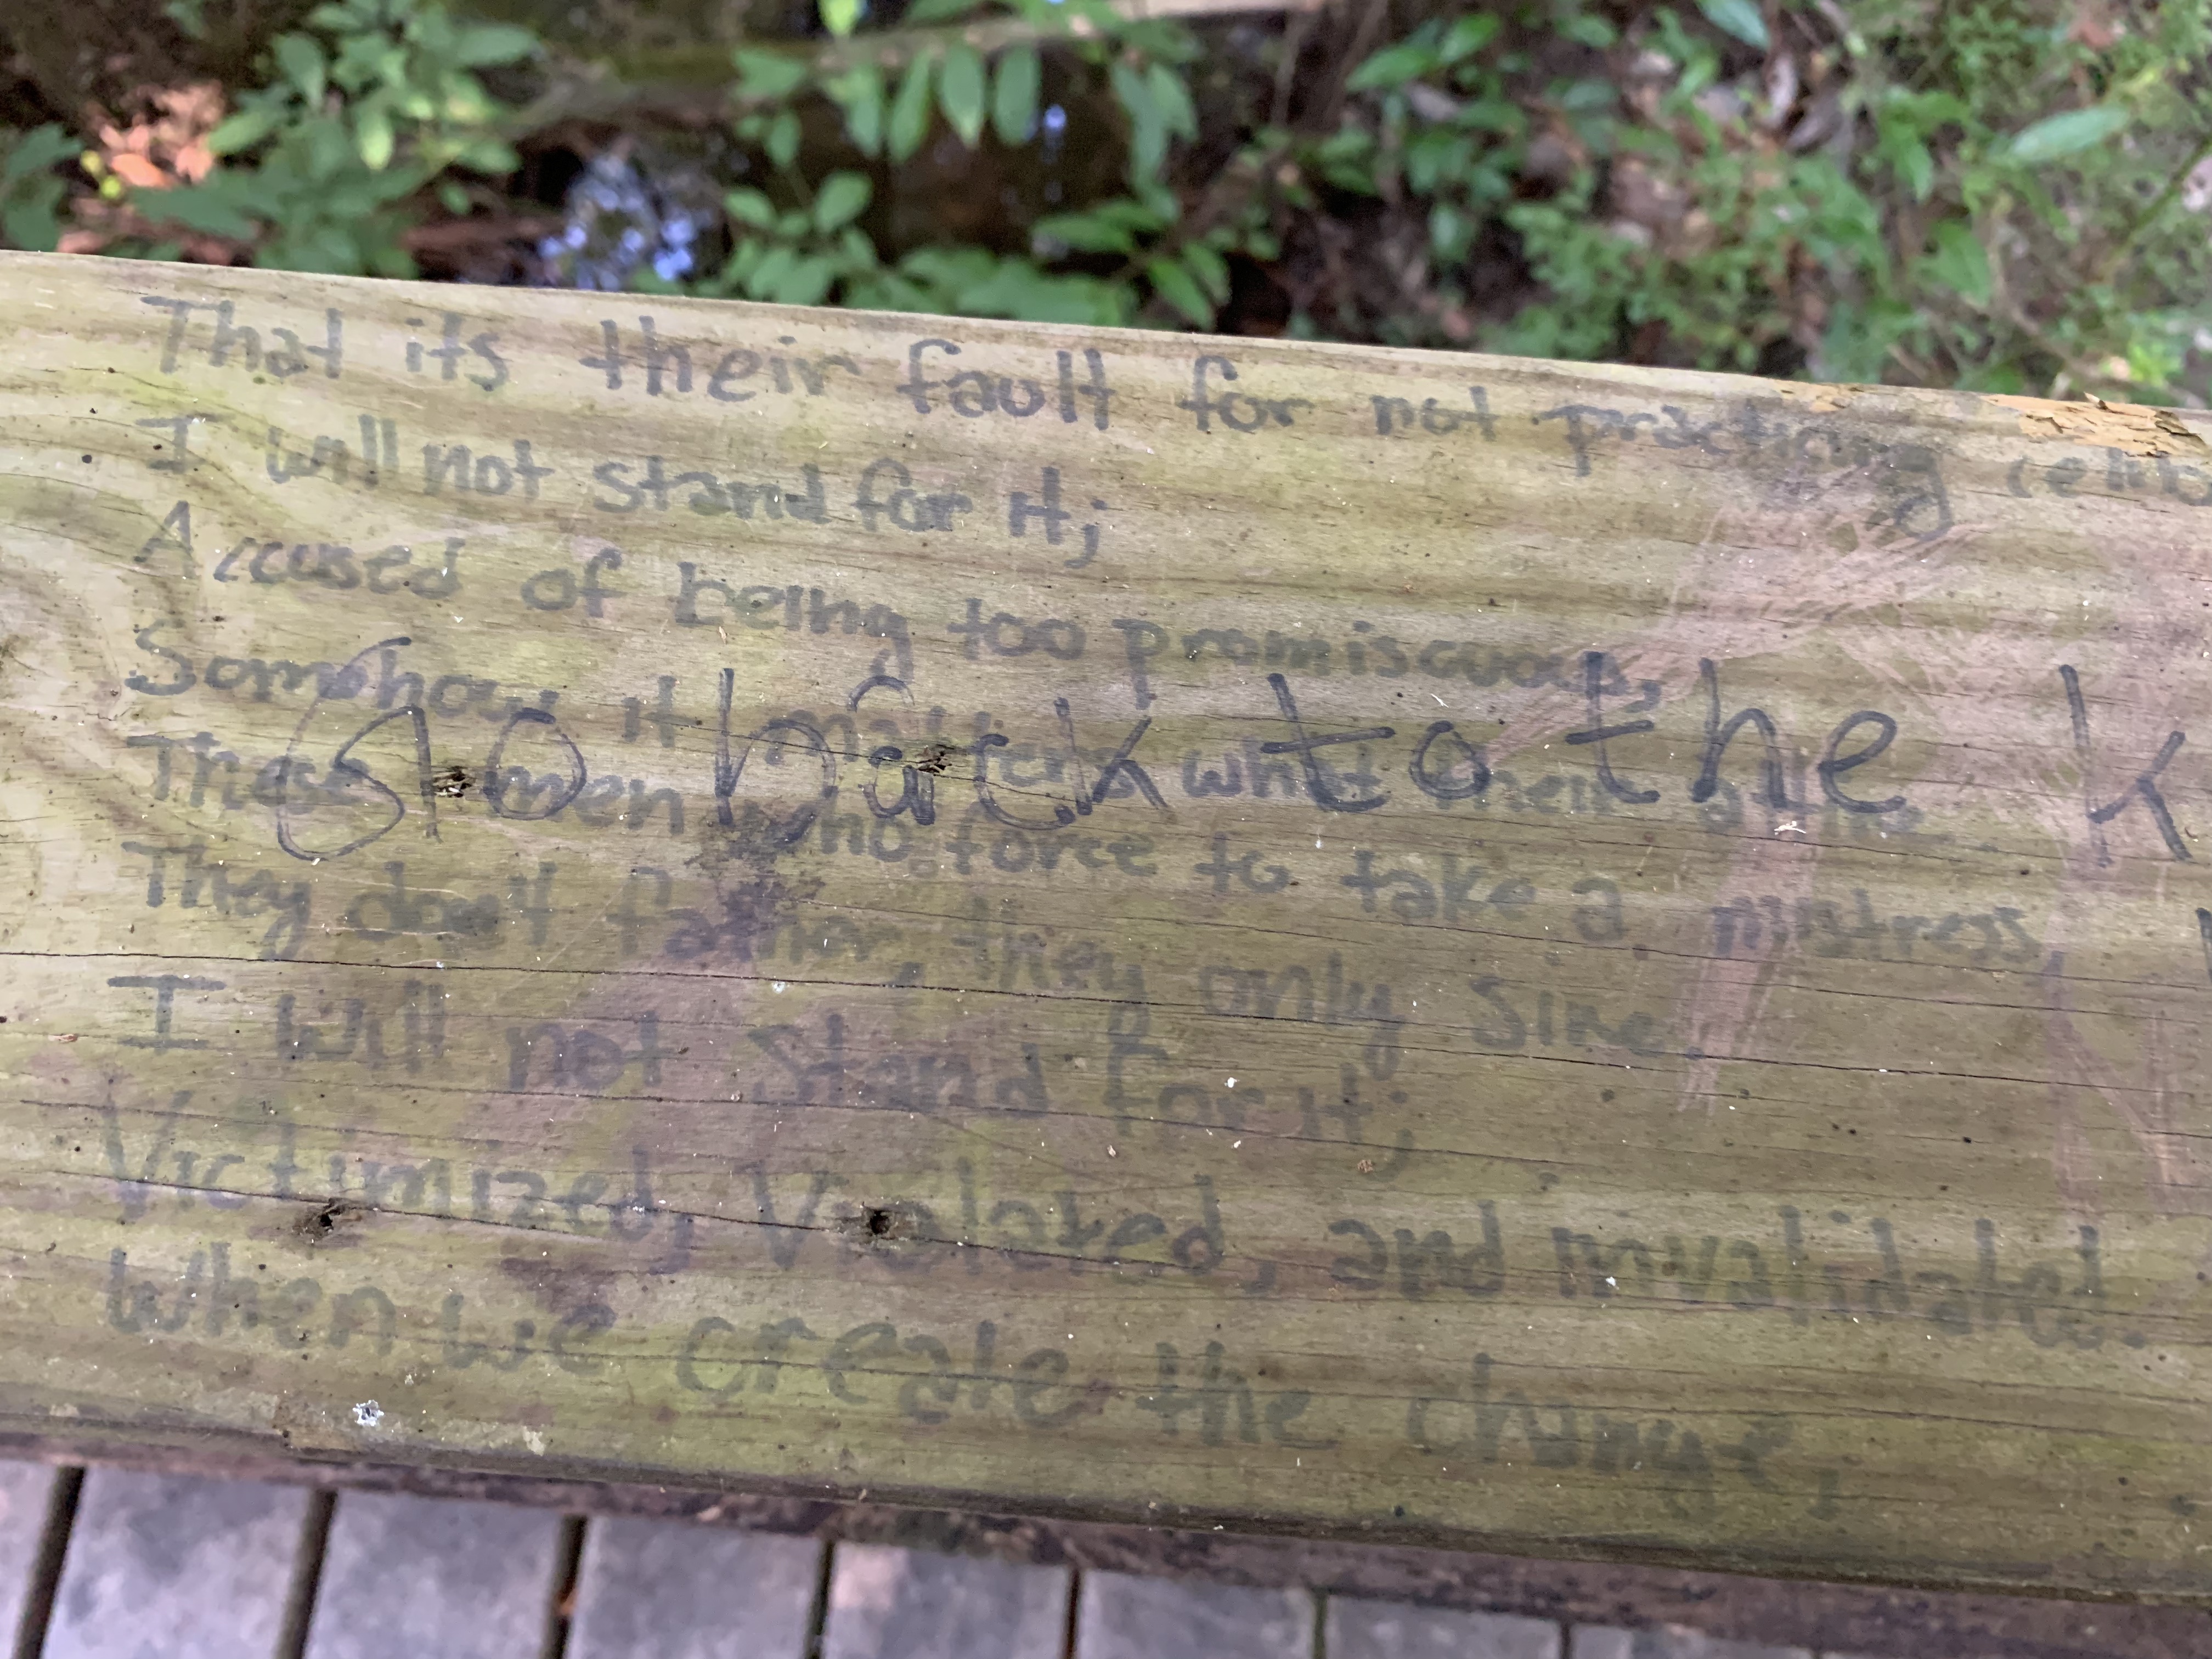 That its their fault for not practicing
I will not stand for it;
Accused of being too promiscuous,
Somehow it matters what their
go back to the k
These men who force to take a mistress,
They don't father, they only sire.
I will not stand for it;
Victimized, Violated, and invalidated.
when we create the change,